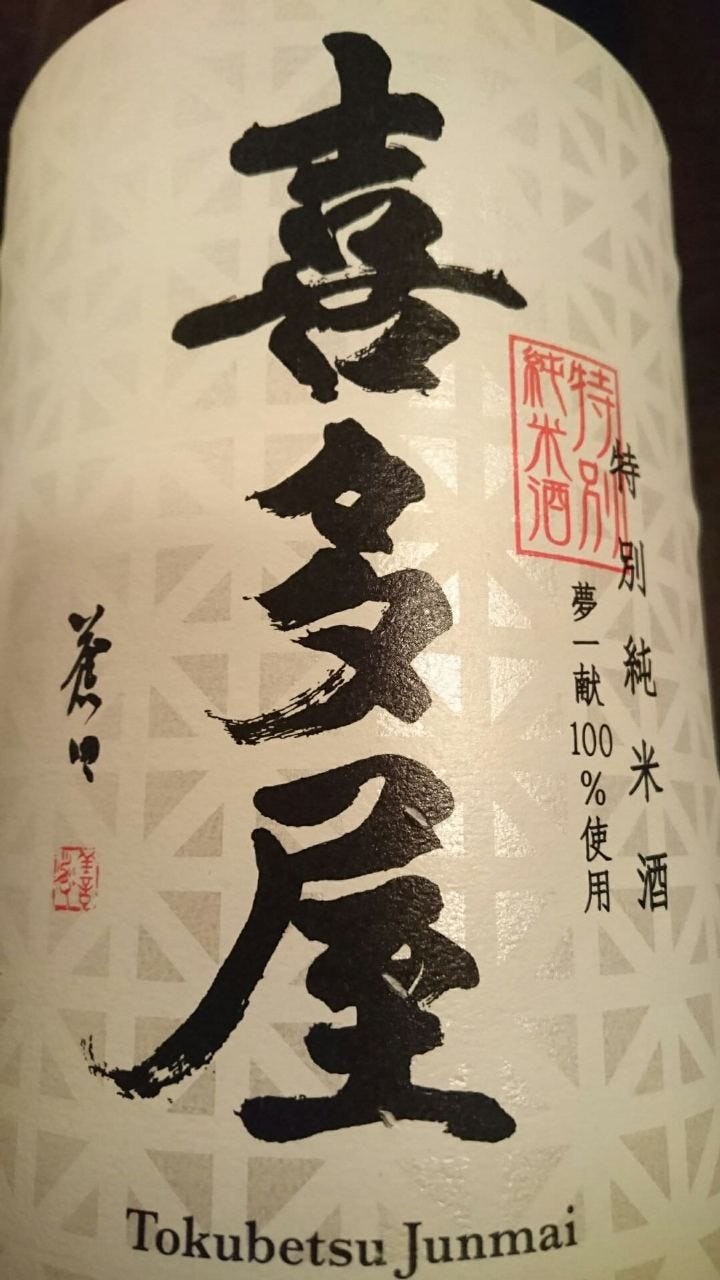 喜多屋
特別
純米酒
特別純米酒
夢一献100%使用
Tokubetsu Junmai